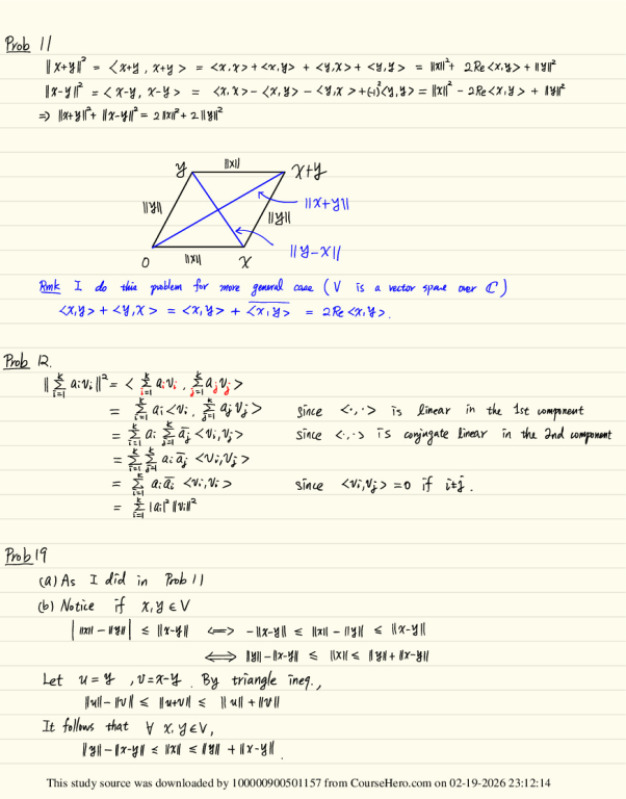 Prob 11
||x+y||² = <x+y, x+y> = <x,x> + <x,y> + <y,x> + <y,y> = ||x||² + 2Re<x,y> + ||y||²
||x-y||² = <x-y, x-y> = <x,x> - <x,y> - <y,x> + (-1)²<y,y> = ||x||² - 2Re<x,y> + ||y||²
⇒ ||x+y||² + ||x-y||² = 2||x||² + 2||y||²
y ||x|| x+y
||y|| ||y|| ||x+y||
||y-x||
0 ||x|| x
Rmk I do this problem for more general case (V is a vector space over ℂ)
<x,y> + <y,x> = <x,y> + \overline{<x,y>} = 2Re<x,y>.
Prob 12.
||∑_{i=1}^k aᵢvᵢ||² = < ∑_{i=1}^k aᵢvᵢ, ∑_{j=1}^k aⱼvⱼ >
= ∑_{i=1}^k aᵢ <vᵢ, ∑_{j=1}^k aⱼvⱼ> since <·,·> is linear in the 1st component
= ∑_{i=1}^k aᵢ ∑_{j=1}^k \overline{aⱼ} <vᵢ,vⱼ> since <·,·> is conjugate linear in the 2nd component
= ∑_{i=1}^k ∑_{j=1}^k aᵢ \overline{aⱼ} <vᵢ,vⱼ>
= ∑_{i=1}^k aᵢ \overline{aᵢ} <vᵢ,vᵢ> since <vᵢ,vⱼ> = 0 if i≠j.
= ∑_{i=1}^k |aᵢ|² ||vᵢ||²
Prob 19
(a) As I did in Prob 11
(b) Notice if x,y ∈ V
| ||x|| - ||y|| | ≤ ||x-y|| ⟺ -||x-y|| ≤ ||x|| - ||y|| ≤ ||x-y||
⟺ ||y|| - ||x-y|| ≤ ||x|| ≤ ||y|| + ||x-y||
Let u = y, v = x-y. By triangle ineq.,
||u|| - ||v|| ≤ ||u+v|| ≤ ||u|| + ||v||
It follows that ∀ x,y ∈ V,
||y|| - ||x-y|| ≤ ||x|| ≤ ||y|| + ||x-y||.
This study source was downloaded by 100000900501157 from CourseHero.com on 02-19-2026 23:12:14